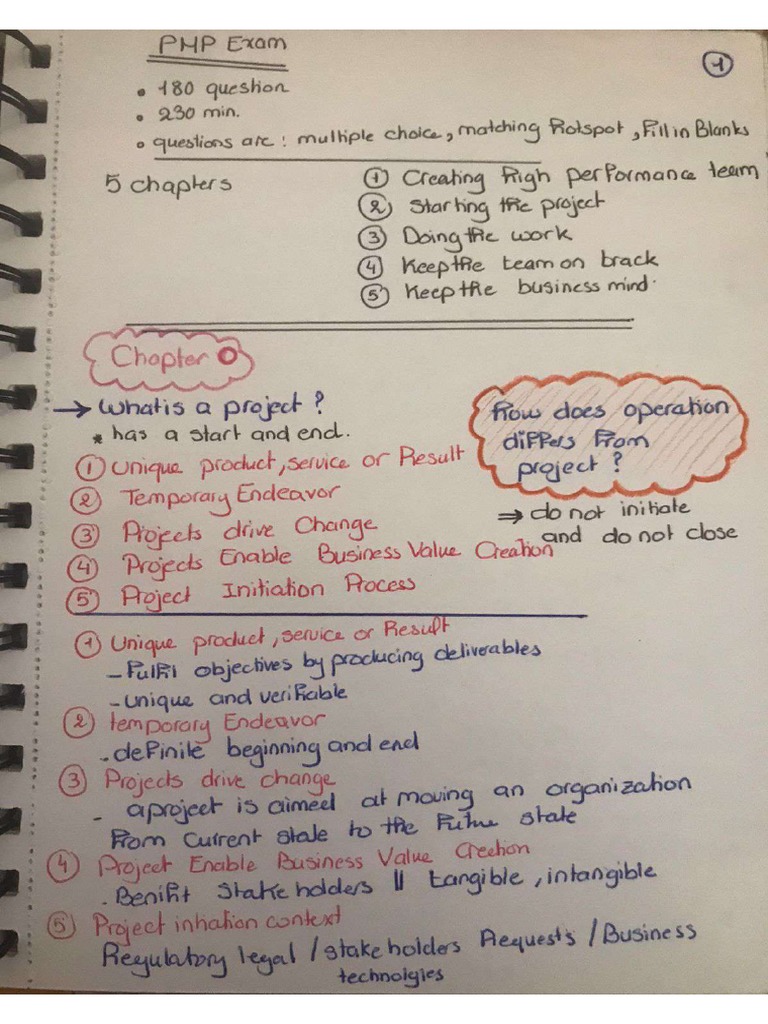 PMP Exam
1
• 180 question
• 230 min.
• questions are: multiple choice, matching Hotspot, Fill in Blanks
5 chapters
① Creating high performance team
② Starting the project
③ Doing the work
④ Keep the team on brack
⑤ Keep the business mind.
Chapter 0
→ What is a project?
* has a start and end.
① Unique product, service or Result
② Temporary Endeavor
③ Projects drive Change
④ Projects Enable Business Value Creation
⑤ Project Initiation Process
How does operation
differs from
project?
⇒ do not initiate
and do not close
① Unique product, service or Result
- Fulfil objectives by producing deliverables
- unique and verifiable
② temporary Endeavor
. definite beginning and end
③ Projects drive change
- a project is aimed at moving an organization
from current state to the future state
④ Project Enable Business Value Creetion
. Benifit Stakeholders || tangible, intangible
⑤ Project inhation context
Regulatory legal / stakeholders Requests / Business
technolgies